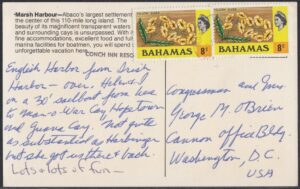 Marsh Harbour—Abaco's largest settlement
center of the 110-mile long island. The
beauty of its magnificent transparent waters
and surrounding cays is unsurpassed.
fine accommodations, excellent food and full
marina facilities for boatmen, you will spend
unforgettable vacation
CONCH INN RESORT
BAHAMAS 8¢
BAHAMAS 8¢
English Harbor from Irish
Harbor - over. Helened
on a 30' sailboat from here
to Man-o-War Cay, Hopetown
and Guana Cay. Not quite
as substantial as Harbinger
but she got us there & back.
Lots & lots of fun -
Congressman and Mrs.
George M. O'Brien
Cannon Office Bldg.
Washington, D.C.
USA